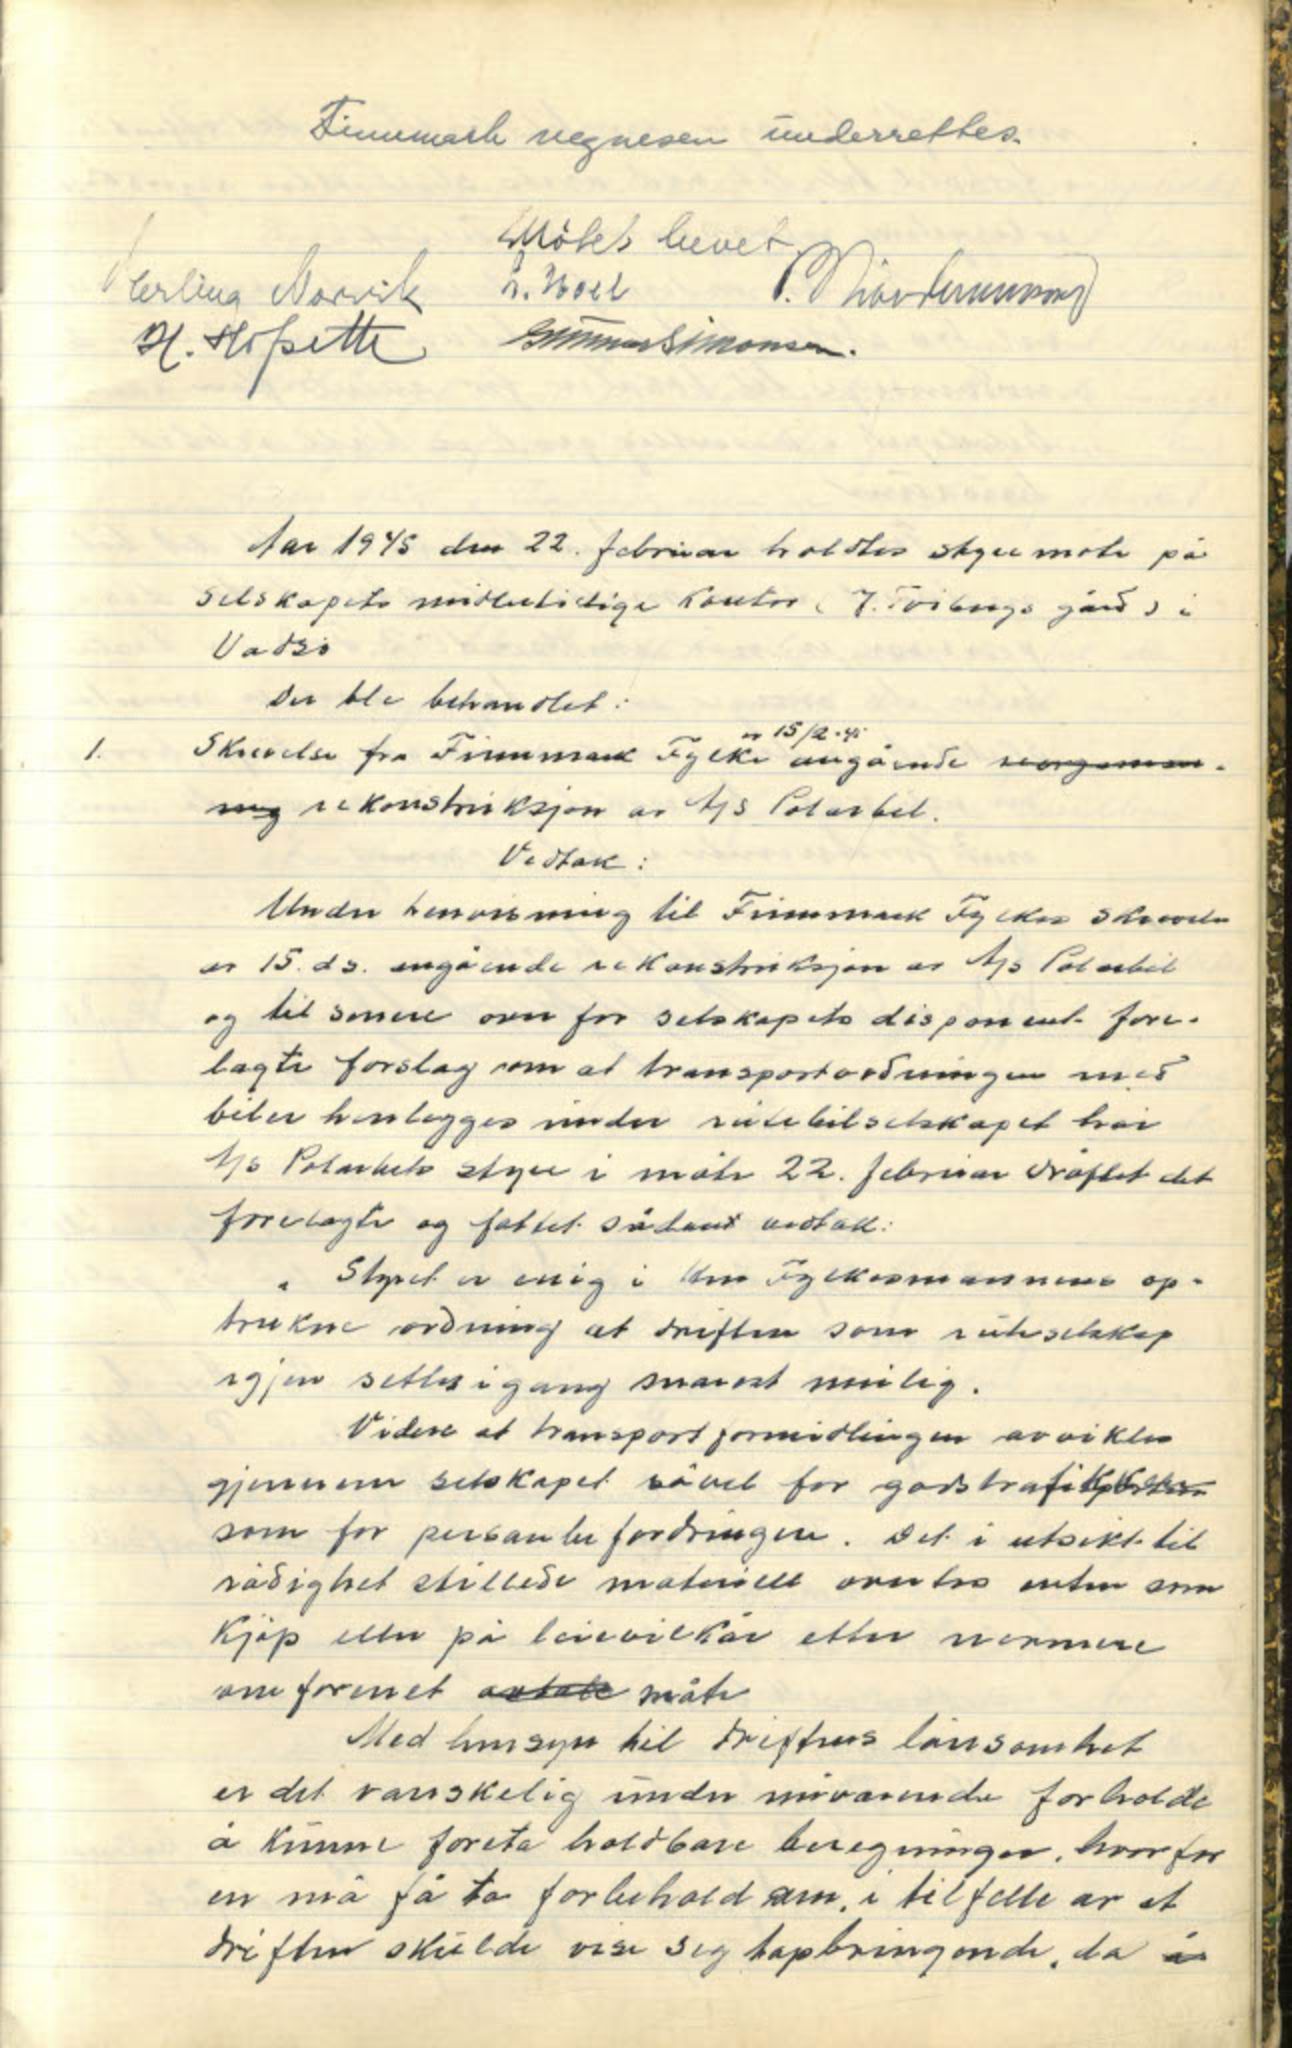 Finnmark vegvesen underrettes.
Møtet hevet
Erling Norvik
H. Hopstti
Gunnar Simonsen.
Aar 1945 den 22. februar holdtes styremøte på
selskapets midlertidige kontor ( J. Tvibergs gård ) i
Vadsø
Der ble behandlet:
av 15/2-45
1. Skrivelse fra Finnmark Fylke angående
rekonstruksjon av A/S Polarbil.
Vedtak:
Under henvisning til Finnmark Fylkes skrivelse
av 15. ds. angående rekonstruksjon av A/S Polarbil
og til senere ovn for selskapets disponent fore-
lagte forslag om at transportordningen med
biler henlegges under rutebilselskapet har
A/S Polarbils styre i møte 22. februar drøftet det
forelagte og fattet sådant vedtak:
" Styret er enig i den Fylkesmannens op-
trukne ordning at driften som ruteselskap
igjen settes igang snarest mulig.
Videre at transportformidlingen avvikles
gjennem selskapet såvel for godstrafikken
som for personbefordringen. Det i utsikt til
rådighet stillede materiell overtas enten som
kjøp eller på leievilkår etter nermere
omforenet avtale måte
Med hensyn til driftens lønsomhet
er det vanskelig under nuværende forholde
å kunne foreta holdbare beregninger, hvorfor
en må få ta forbehold om, i tilfelle av at
driften skulde vise seg tapbringende, da å